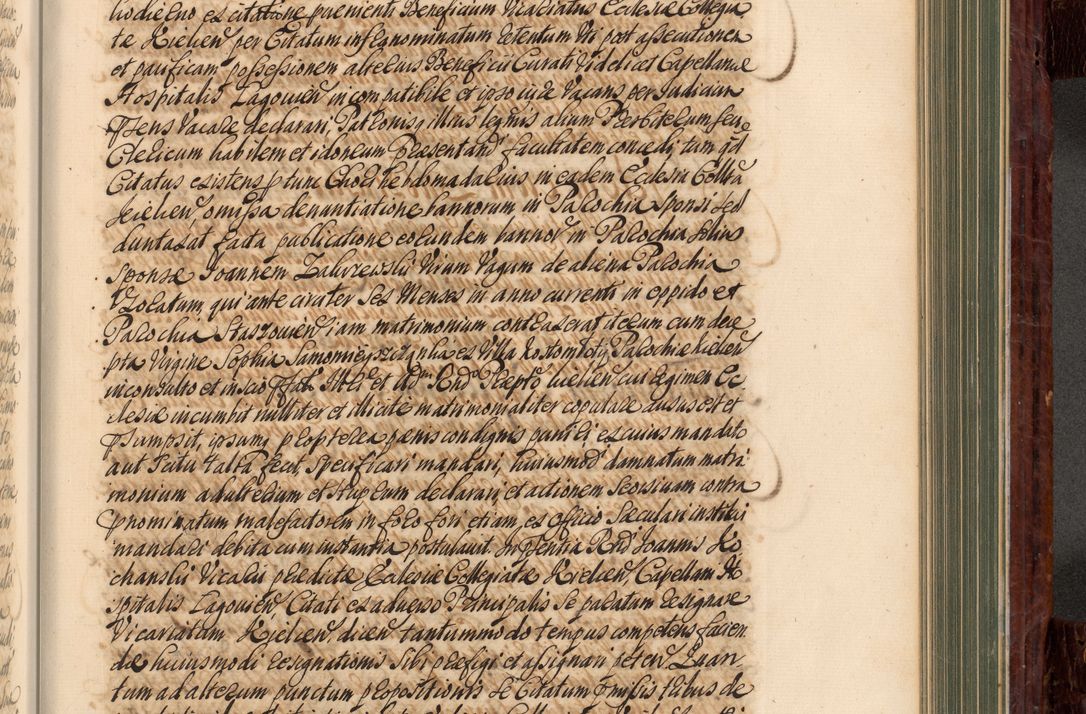 hodierno ex citatione praevenienti Beneficium Vicariatus Ecclesiæ Collegia
tæ Kielcen per Citatum infragnominatum retentum Vti post assecutionem
et pacificam possessionem alterius Beneficii Curati Videlicet Capellaniæ
Hospitalis Łagovien incompatibile et ipso iure Vacans per Judicium
præsens Vacare declarari, Patronisq illius legitimis alium Presbiterum seu
Clericum habilem et idoneum Præsentand facultatem concedi, tum qd
Citatus existens p tunc Chori hebdomadarius in eadem Ecclesia Collta
Kielcen omissa denuntiatione bannorum in Parochia Sponsi sed
duntaxat facta publicatione eorundem bannor in Parochia illius
Sponsæ Joannem Zakrzewski Virum Vagum de aliena Parochia
Vxoratum, qui ante circiter Sex Menses in anno currenti in oppido et
Parochia Staszovien iam matrimonium contraxerat iterum cum dere
pta Virgine Sophia ex Villa Parochiæ Kielcen
inconsulto et inscio Illri et Adm Rndo Præpto Kielcen cui regimen Ec
clesiæ incumbit nulliter et illicite matrimonialiter copulare ausus est et
præsumpsit, ipsumq propterea pænis condignis puniri ex cuius mandato
aut scitu talia fecit, specificari mandari, huiusmodi damnatum matri
monium adulterium et stuprum declarari, et actionem seorsivam contra
prænominatum malefactorem in foro fori etiam ex officio sæculari institui
mandari debita cum instantia postulavit. In præsentia Rndi Joannis Ko
chanski Vicarii prædictæ Ecclesiæ Collegiatæ Kielcen Capellani Ho
spitalis Łagovien Citati ex adverso Principalis se paratum resignare
Vicariatum Kielcen dicen tantummodo tempus competens facien
dæ huiusmodi resignationis sibi præfigi et assignari peten Quan
tum ad alterum punctum propositionis se Citatum præmissis tribus de